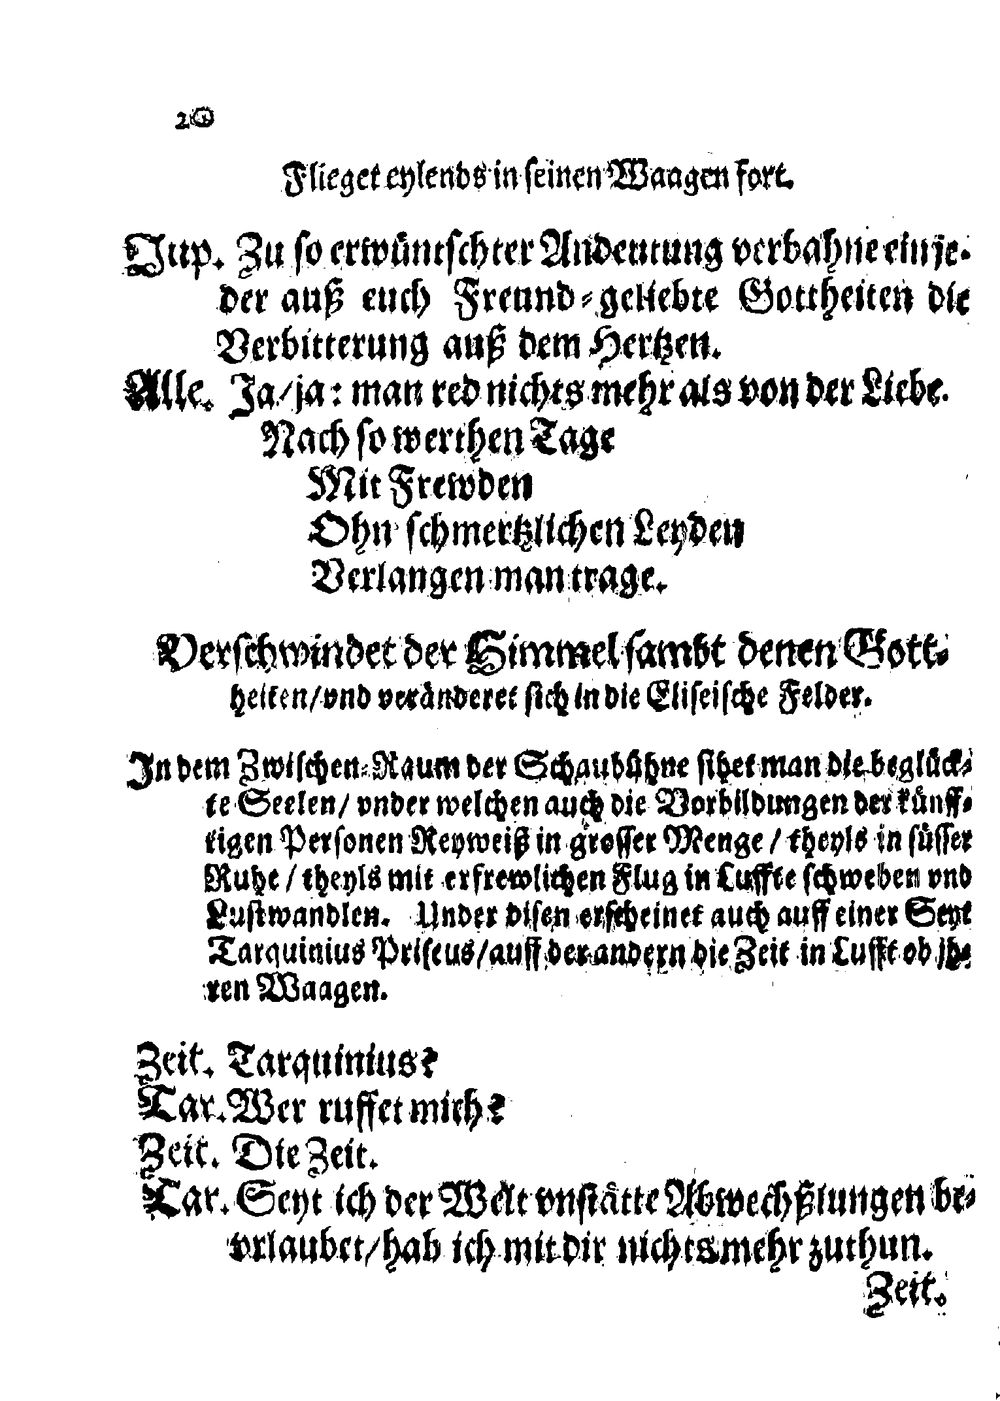 Flieget eylends in seinen Waagen fort.
Jup. Zu so erwüntschter Andeutung verbahne ein je-
der auß euch Freund-geliebte Gottheiten die
Verbitterung auß dem Hertzen.
Alle. Ja/ja: man red nichts mehr als von der Liebe.
Nach so werthen Tage
Mit Frewden
Ohn schmertzlichen Leyden
Verlangen man trage.
Verschwindet der Himmel sambt denen Gott-
heiten/vnd veränderet sich in die Eliseische Felder.
In dem Zwischen-Raum der Schaubühne sihet man die beglück-
te Seelen/ vnder welchen auch die Vorbildungen der künff-
tigen Personen Reyweiß in grosser Menge / theyls in süsser
Ruhe / theyls mit erfrewlichen Flug in Luffte schweben vnd
Lustwandlen. Under disen erscheinet auch auff einer Seyt
Tarquinius Priscus/auff der andern die Zeit in Lufft ob ih-
ren Waagen.
Zeit. Tarquinius?
Tar. Wer ruffet mich?
Zeit. Die Zeit.
Tar. Seyt ich der Welt vnstätte Abwechßlungen be-
vrlaubet/hab ich mit dir nichts mehr zuthun.
Zeit.